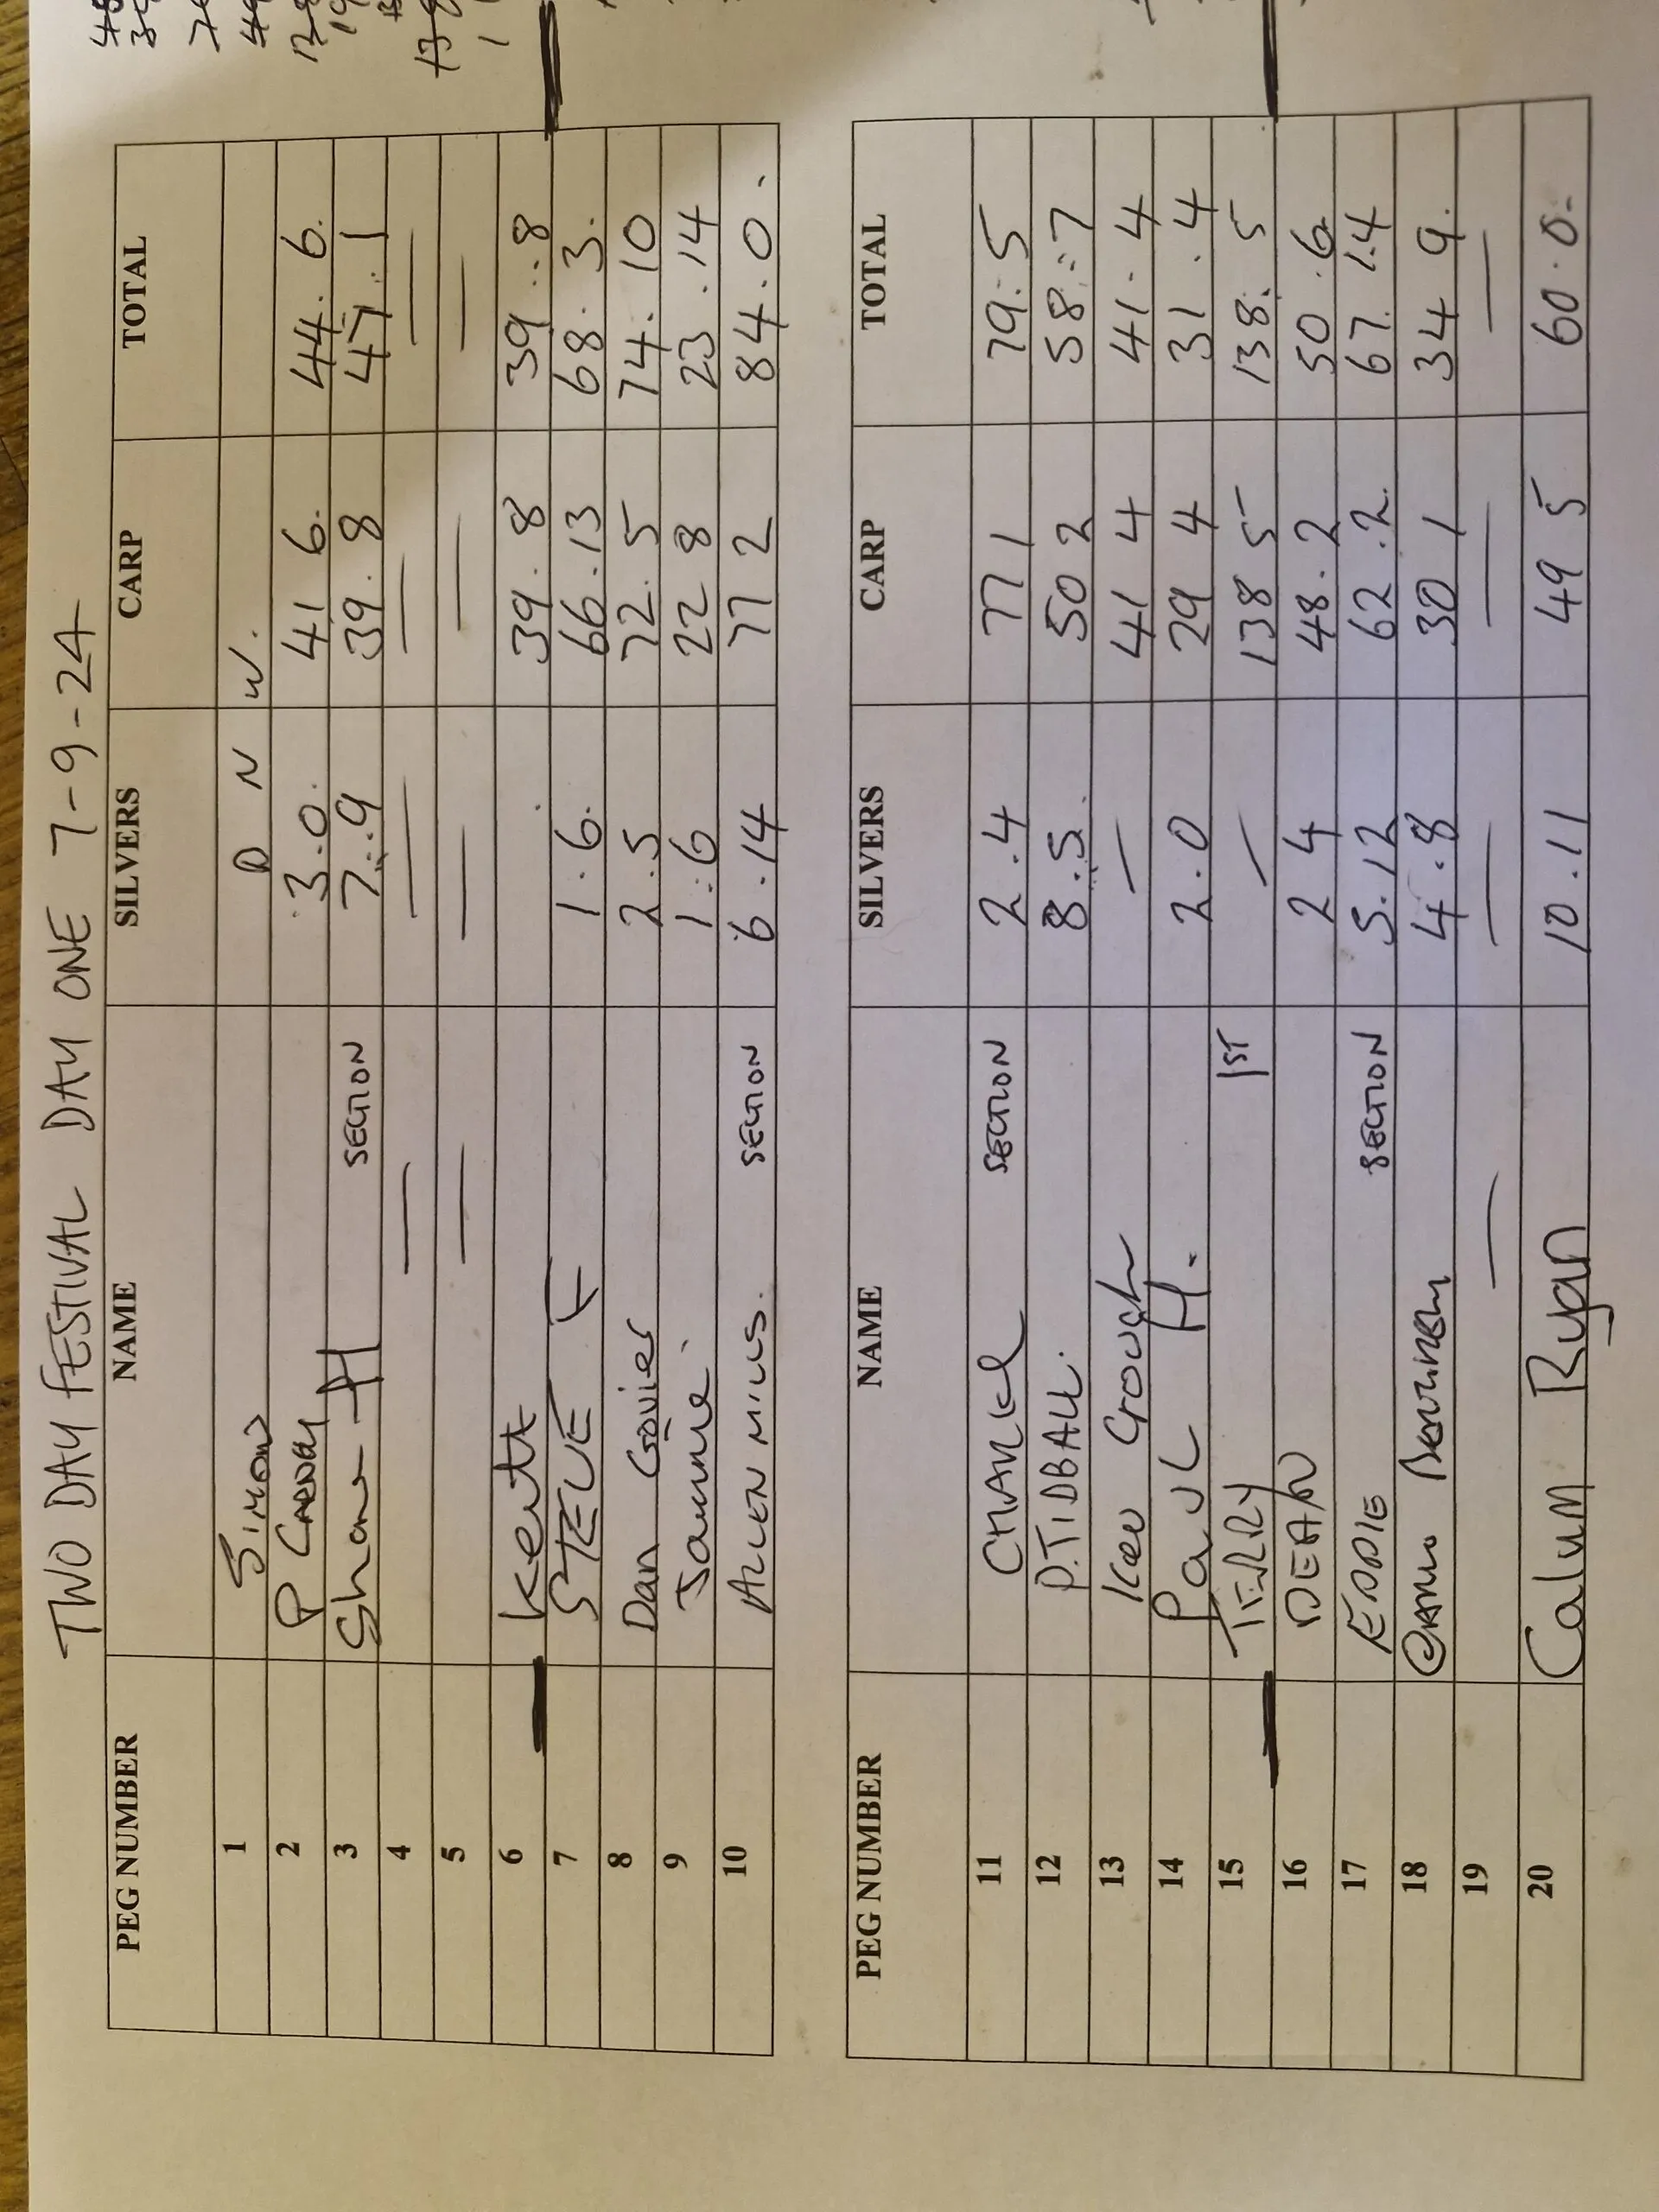 TWO DAY FESTIVAL DAY ONE 7-9-24
PEG NUMBER NAME SILVERS CARP TOTAL
1 SIMON D N W.
2 P 3.0. 41 6. 44.6.
3 Shane H SECTION 7.9 39.8 47.1
4 — — — —
5 — — — —
6 Kent 39.8 39.8
7 STEVE F 1.6. 66.13 68.3.
8 Dan Govier 2.5 72.5 74.10
9 1.6 22 8 23.14
10 ALLEN MILLS. SECTION 6.14 77 2 84.0.
PEG NUMBER NAME SILVERS CARP TOTAL
11 SECTION 2.4 77 1 79.5
12 P.TIDBALL. 8.5. 50 2 58.7
13 Ken Crouch — 41 4 41.4
14 Paul H. 2.0 29 4 31.4
15 TERRY 1ST — 138 5 138.5
16 DEAN 2 4 48.2 50.6
17 EDDIE SECTION 5.12 62.2. 67.14
18 4.8 30 1 34 9.
19 — — — —
20 Calum Ryan 10.11 49 5 60.0-